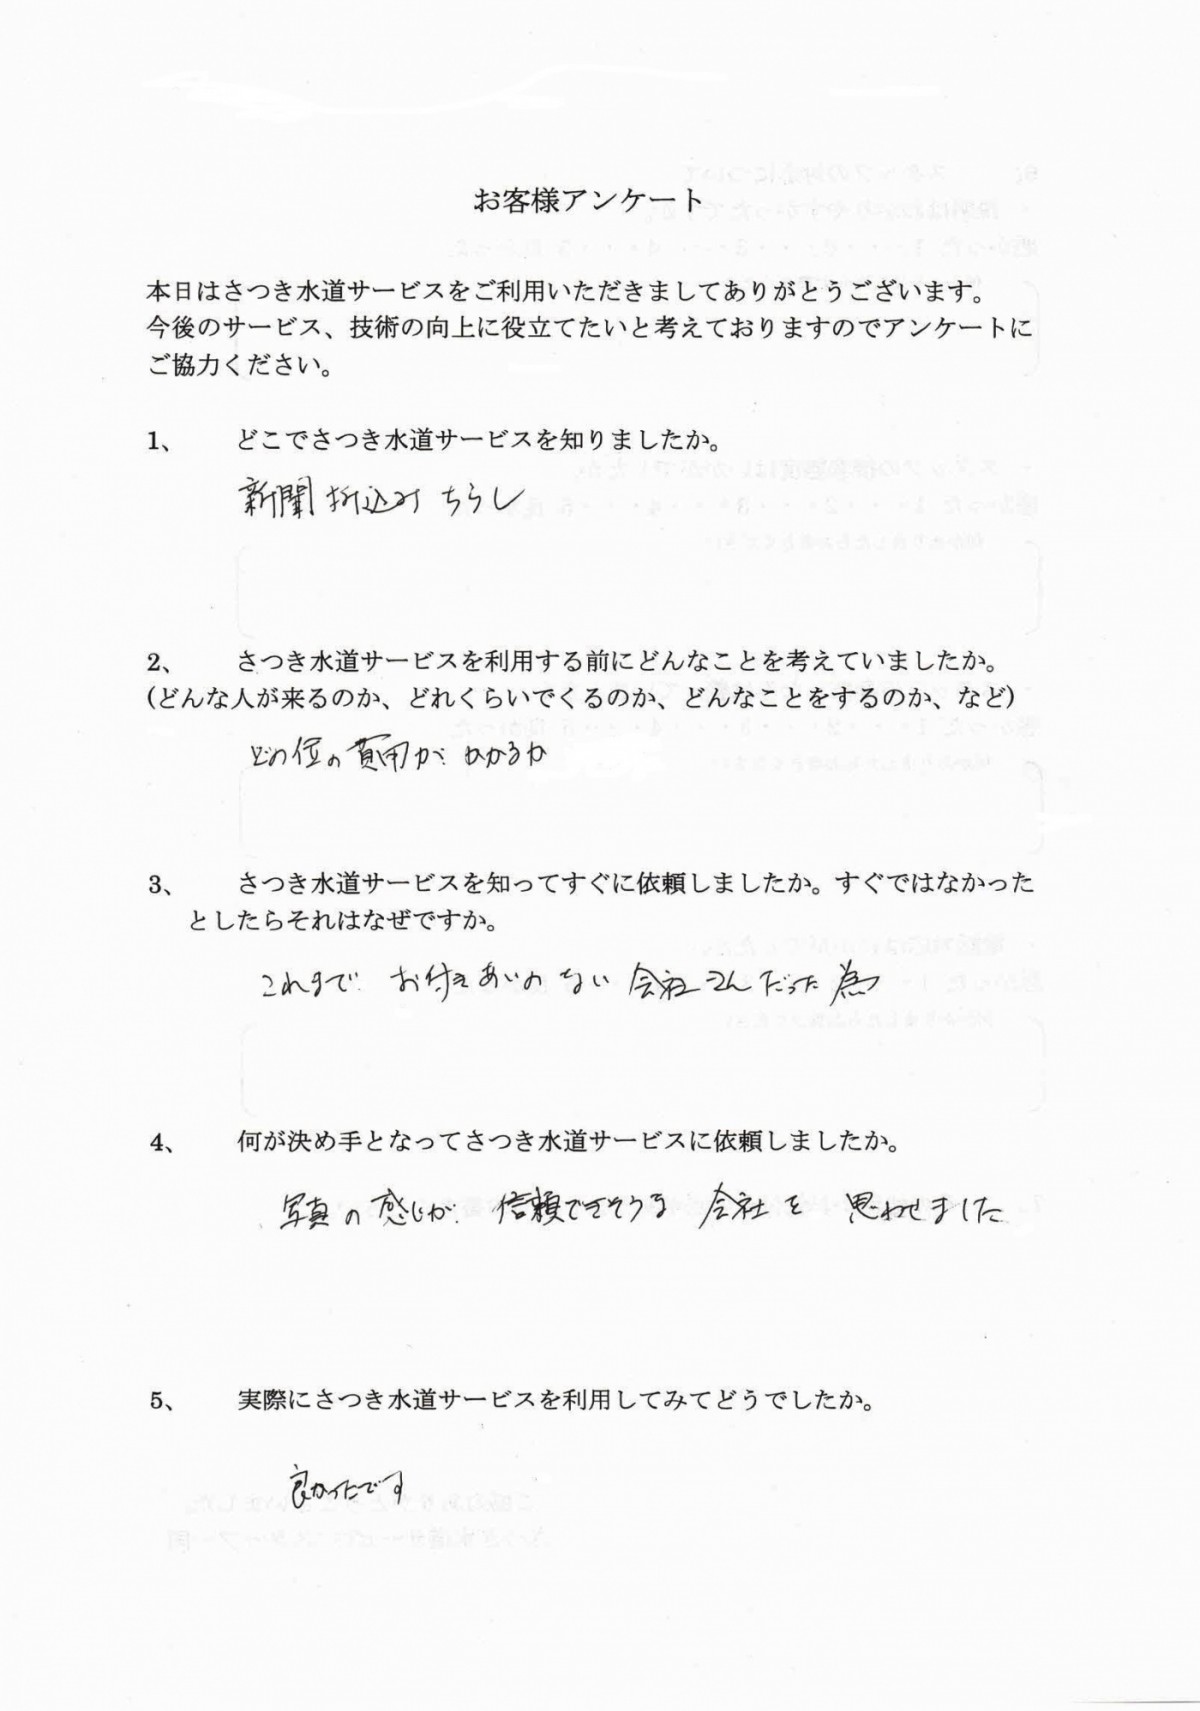 お客様アンケート
本日はさつき水道サービスをご利用いただきましてありがとうございます。
今後のサービス、技術の向上に役立てたいと考えておりますのでアンケートに
ご協力ください。
1、 どこでさつき水道サービスを知りましたか。
新聞折込み ちらし
2、 さつき水道サービスを利用する前にどんなことを考えていましたか。
(どんな人が来るのか、どれくらいでくるのか、どんなことをするのか、など)
どの位の費用が かかるか
3、 さつき水道サービスを知ってすぐに依頼しましたか。すぐではなかった
としたらそれはなぜですか。
これまで お付きあいのない 会社さんだった為
4、 何が決め手となってさつき水道サービスに依頼しましたか。
写真の感じが 信頼できそうな 会社を 思わせました
5、 実際にさつき水道サービスを利用してみてどうでしたか。
良かったです